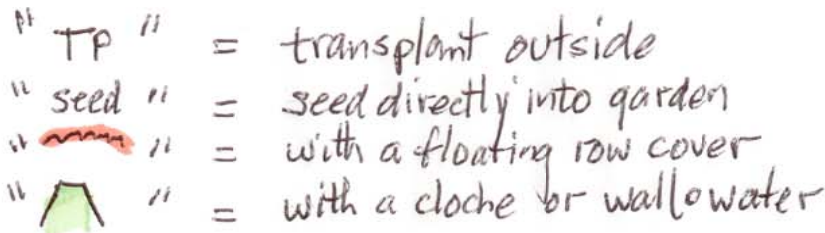 " TP " = transplant outside
" seed " = seed directly into garden
" " = with a floating row cover
" " = with a cloche or wallowater